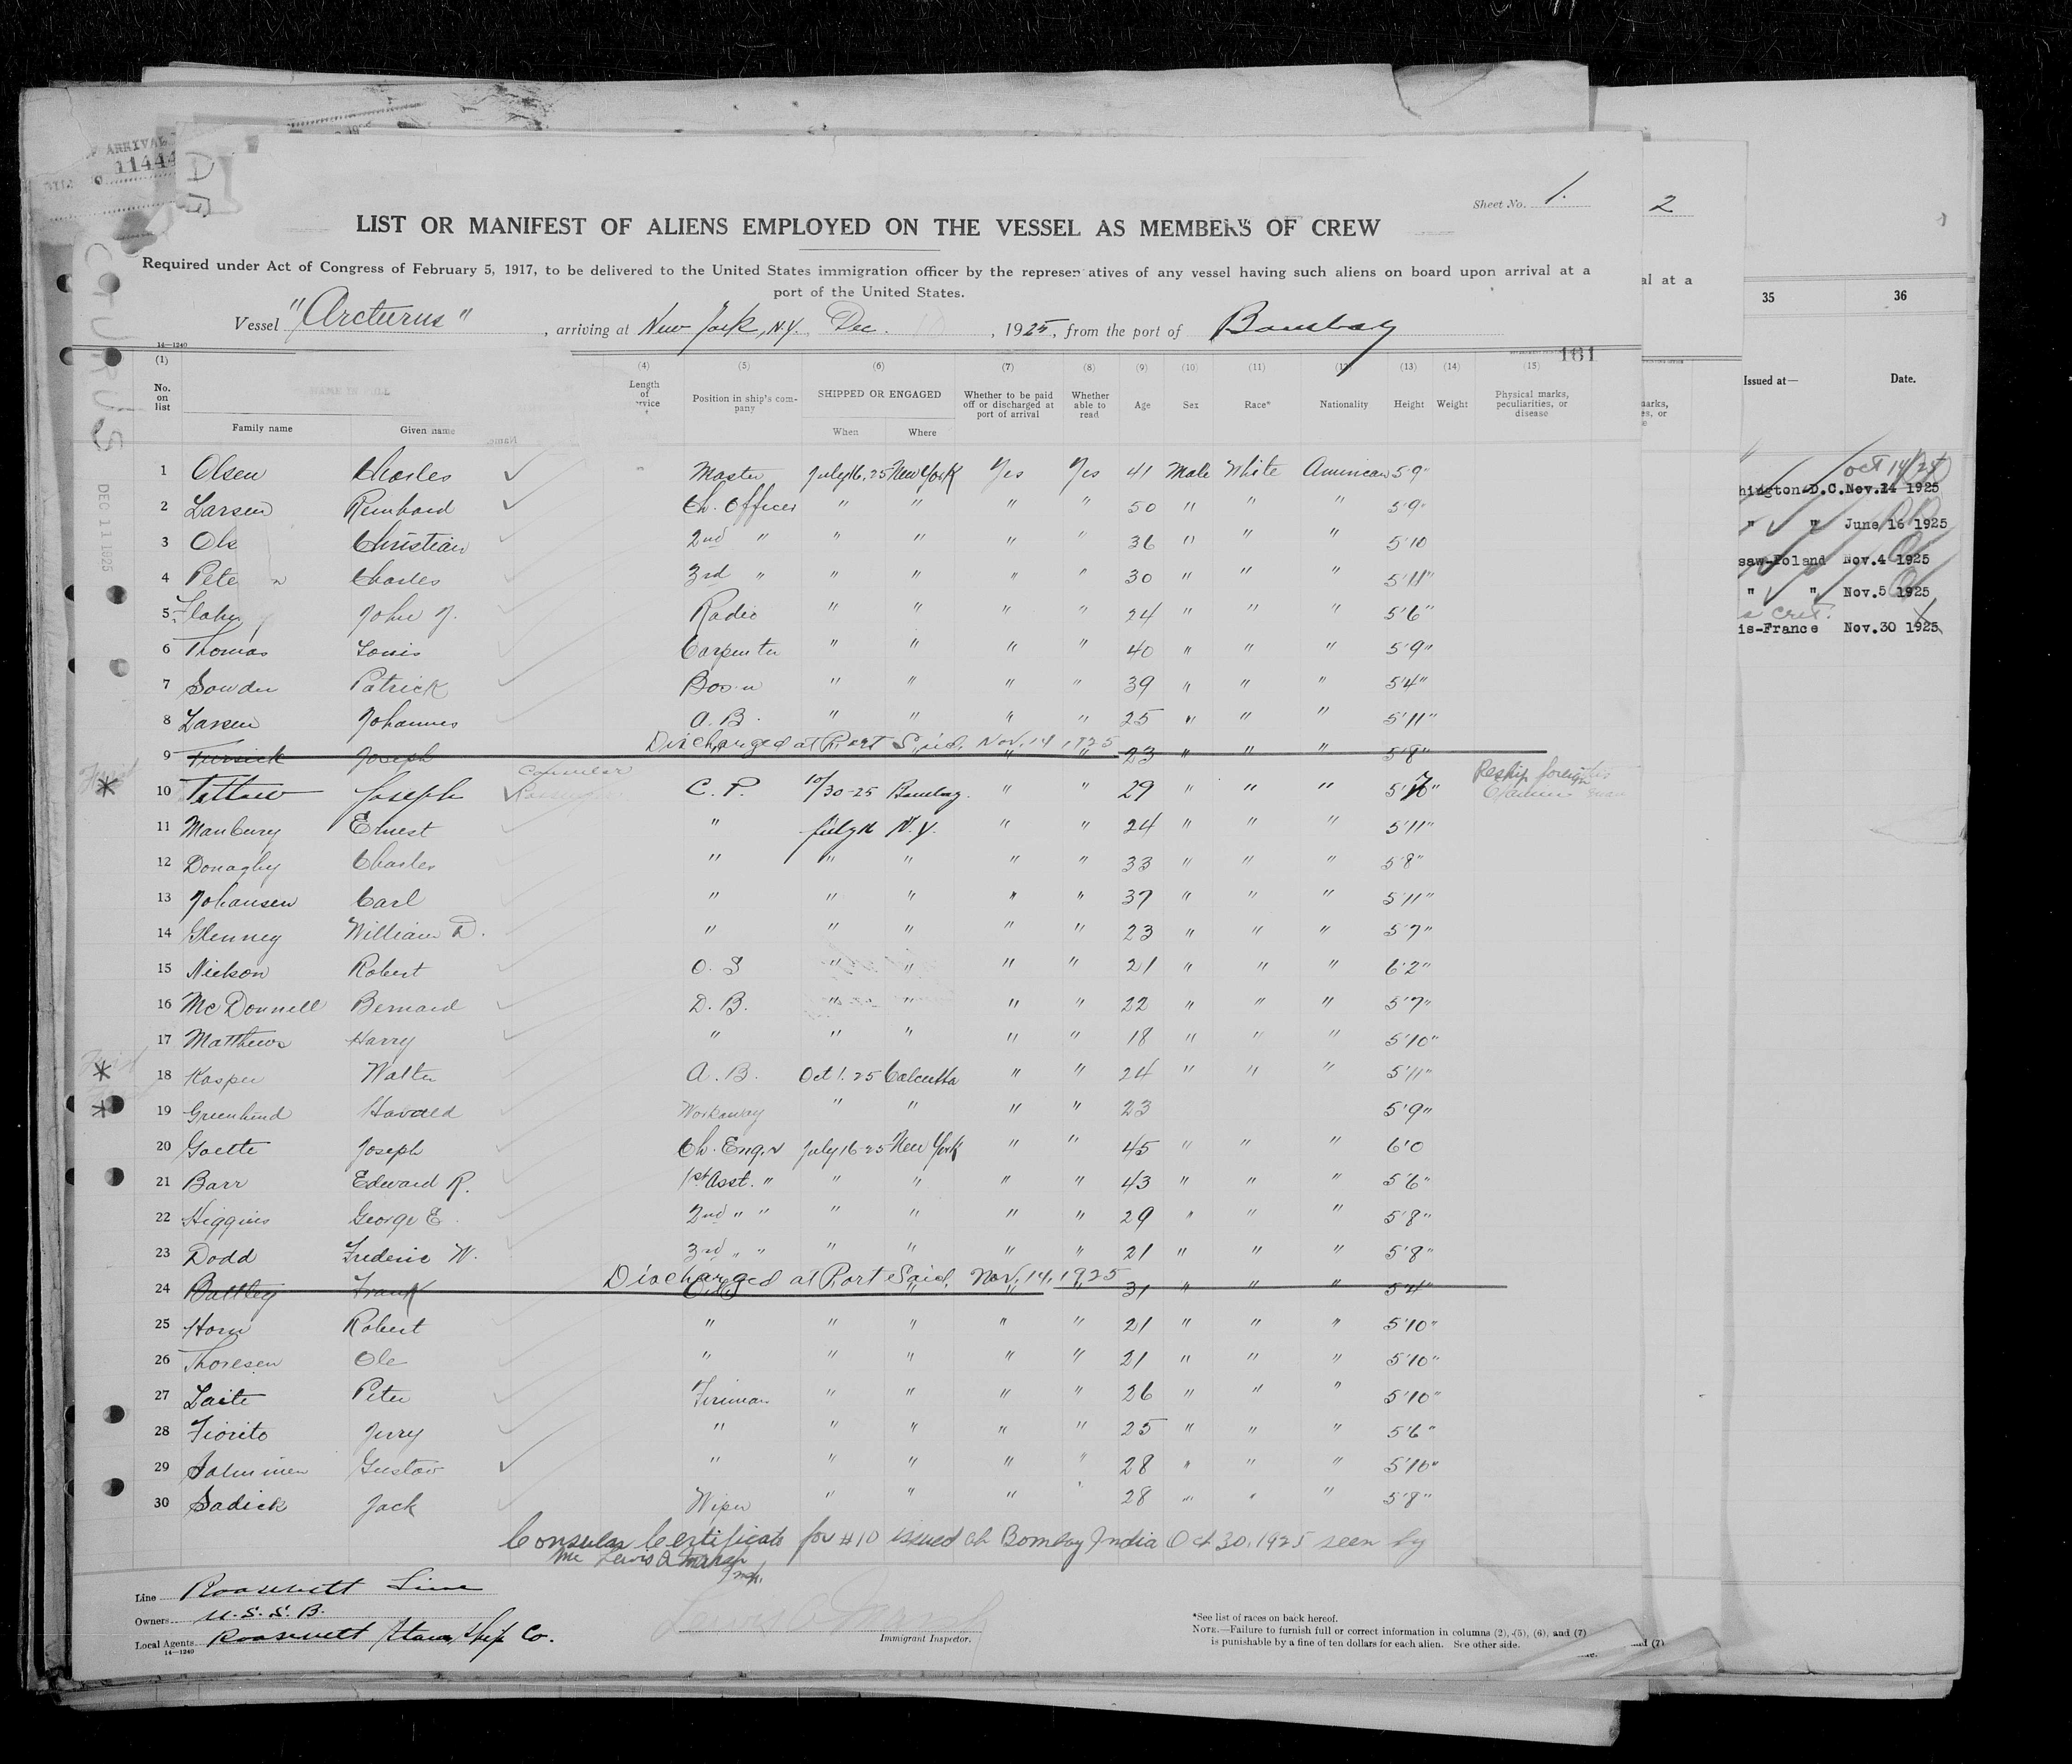 ARRIVAL
11444
Sheet No. 1.
2
LIST OR MANIFEST OF ALIENS EMPLOYED ON THE VESSEL AS MEMBERS OF CREW
Required under Act of Congress of February 5, 1917, to be delivered to the United States immigration officer by the represen atives of any vessel having such aliens on board upon arrival at a
port of the United States.
al at a
Vessel "Arcturus", arriving at New York, N.Y. Dec. 1925, from the port of Bombay
14—1240
161
DEC 11 1925
(1) (4) (5) (6) (7) (8) (9) (10) (11) (13) (14) (15)
No. on list Family name Given name Length of rvice Position in ship's company SHIPPED OR ENGAGED When Where Whether to be paid off or discharged at port of arrival Whether able to read Age Sex Race* Nationality Height Weight Physical marks, peculiarities, or disease
35 36
Issued at— Date.
1 Olsen Charles Master July 16, 25 New York Yes Yes 41 Male White American 5 9"
2 Larsen Ch. Officer " " " " 50 " " " 5'9"
3 Ols Christian 2nd " " " " " 36 " " " 5'10
4 Pete n Charles 3rd " " " " " 30 " " " 5'11"
5 John J. Radio " " " " 24 " " " 5'6"
6 Thomas Louis Carpenter " " " " 40 " " " 5'9"
7 Patrick Bos'n " " " " 39 " " " 5'4"
8 Larsen Johannes A.B. " " " " 25 " " " 5'11"
Discharged at Port Said, Nov. 14 1925
9 Joseph " " 23 " " " 5'8"
Consular
10 Joseph C.P. 10/30-25 Bombay " " 29 " " "
Reship foreign
11 Manbury Ernest " July 16 N.Y. " " 24 " " " 5'11"
12 Donaghy Charles " " " " " 33 " " " 5'8"
13 Johansen Carl " " " " " 37 " " " 5'11"
14 Glenney William D. " " " " " 23 " " " 5'7"
15 Nielson Robert O.S " " " " 21 " " " 6'2"
16 McDonnell Bernard D.B. " " " " 22 " " " 5'7"
17 Matthews Harry " " " " " 18 " " " 5'10"
18 Kasper Walter A.B. Oct 1. 25 Calcutta " " 24 " " " 5'11"
19 Workaway " " " " 23 5'9"
20 Goette Joseph Ch. Eng.r July 16-25 New York " " 45 " " " 6'0
21 Barr Edward R. 1st Asst. " " " " " 43 " " " 5'6"
22 Higgins George E. 2nd " " " " " " 29 " " " 5'8"
23 Dodd Frederic W. 3rd " " " " " " 21 " " " 5'8"
Discharged at Port Said, Nov. 14, 1925
24 Battley Frank " " " 31 " " " 5'4"
25 Horn Robert " " " " " 21 " " " 5'10"
26 Thoresen Ole " " " " " 21 " " " 5'10"
27 Laite Peter Fireman " " " " 26 " " " 5'10"
28 Fiorito Jerry " " " " " 25 " " " 5'6"
29 Salminen Gustav " " " " " 28 " " " 5'10"
30 Sadick Jack Wiper " " " " 28 " " " 5'8"
Consular Certificate for #10 issued at Bombay India Oct 30, 1925 seen by
me Lewis A Marsh
Insp.
Line Roosevelt Line
Owners U.S.S.B.
Local Agents Roosevelt Steam Ship Co.
14—1240
Immigrant Inspector.
*See list of races on back hereof.
NOTE.—Failure to furnish full or correct information in columns (2), (5), (6), and (7)
is punishable by a fine of ten dollars for each alien. See other side.
hington D.C. Nov. 24 1925
" " June 16 1925
saw-Poland Nov. 4 1925
" " Nov. 5 1925
is-France Nov. 30 1925